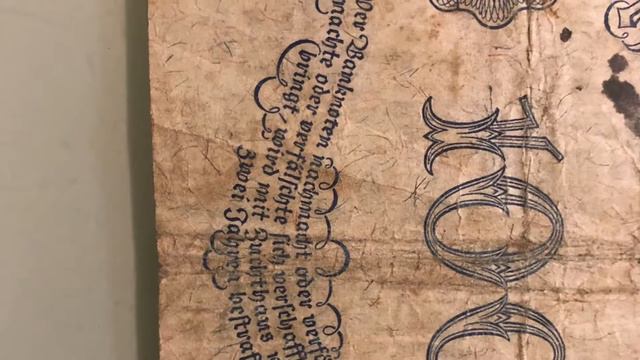 Wer Banknoten nachmacht oder verf
machte oder verfälschte sich verschaff
bringt, wird mit Zuchthaus
zwei Jahren bestraf
100